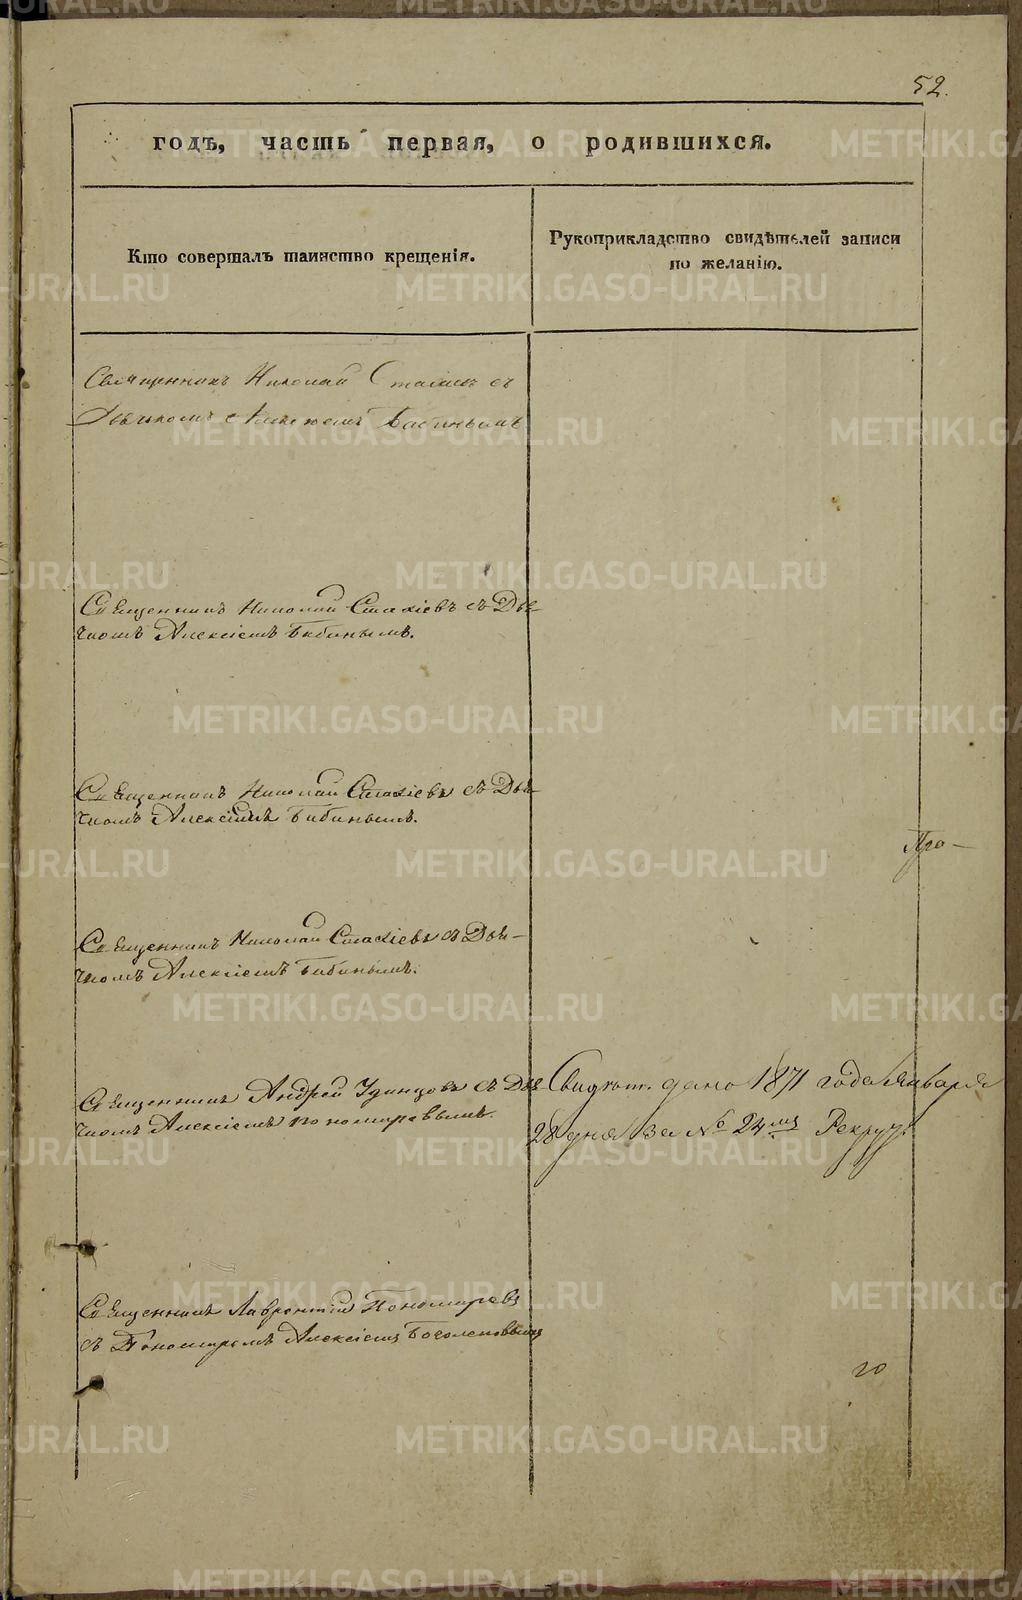 52.
годъ, часть первая, о родившихся.
Кто совершалъ таинство крещенія.
Рукоприкладство свидѣтелей записи
по желанію.
Священникъ Николай Стахіевъ съ
Дьячкомъ Алексіемъ Бабинымъ
Священникъ Николай Стахіевъ съ Дья-
чкомъ Алексіемъ Бабинымъ.
Священникъ Николай Стахіевъ съ Дья-
чкомъ Алексіемъ Бабинымъ.
Про-
Священникъ Николай Стахіевъ съ Дья-
чкомъ Алексіемъ Бабинымъ.
Священникъ Андрей Удинцовъ съ Дья-
чкомъ Алексіемъ Пономаревымъ.
Свидѣт. дано 1871 года Января
28 дня за № 24 мъ Рекрут.
Священникъ Лаврентій Пономаревъ
съ Пономаремъ Алексіемъ Боголеповымъ
го
METRIKI.GASO-URAL.RU